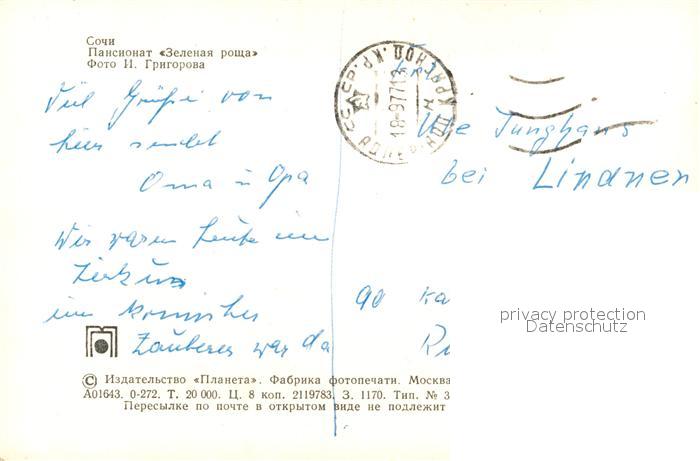 Сочи
Пансионат «Зеленая роща»
Фото И. Григорова
Viel Grüße von
hier sendet
Oma u Opa
Wir waren heute im
Zirkus
ein komischer
Zauberer war da
An
18-977
Junghans
bei Lindner
90 Ka
privacy protection
Datenschutz
© Издательство «Планета». Фабрика фотопечати. Москва
А01643. 0-272. Т. 20 000. Ц. 8 коп. 2119783. З. 1170. Тип. № 3
Пересылке по почте в открытом виде не подлежит